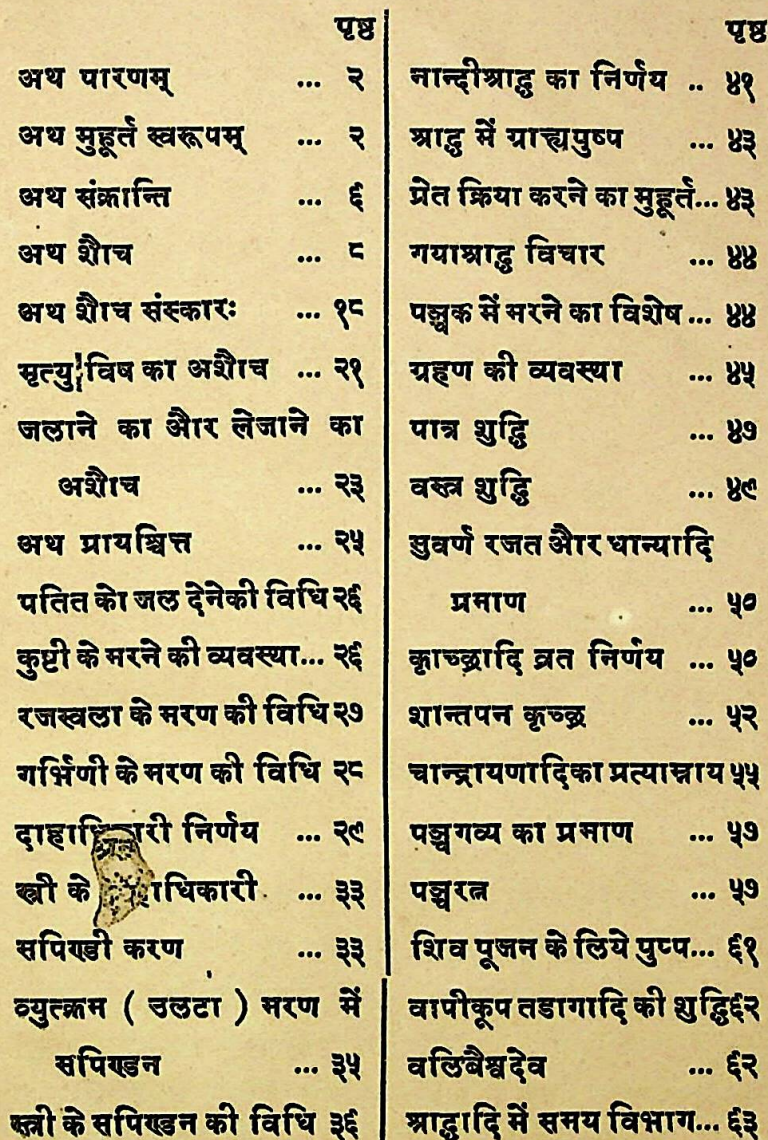 पृष्ठ
अथ पारणम् ... २
अथ मुहूर्त स्वरूपम् ... २
अथ संक्रान्ति ... ६
अथ शौच ... ८
अथ शौच संस्कारः ... १८
मृत्यु विष का अशौच ... २१
जलाने का और लेजाने का
अशौच ... २३
अथ प्रायश्चित्त ... २५
पतित को जल देनेकी विधि २६
कुष्टी के मरने की व्यवस्था... २६
रजस्वला के मरण की विधि २७
गर्भिणी के मरण की विधि २८
निर्णय ... २९
स्त्री के ... ३३
सपिण्डी करण ... ३३
व्युत्क्रम ( उलटा ) मरण में
सपिण्डन ... ३५
स्त्री के सपिण्डन की विधि ३६
पृष्ठ
नान्दीश्राद्ध का निर्णय .. ४१
श्राद्ध में ग्राह्यपुष्प ... ४३
प्रेत क्रिया करने का मुहूर्त... ४३
गयाश्राद्ध विचार ... ४४
पञ्चक में मरने का विशेष ... ४४
ग्रहण की व्यवस्था ... ४५
पात्र शुद्धि ... ४७
वस्त्र शुद्धि ... ४९
सुवर्ण रजत और धान्यादि
प्रमाण ... ५०
कृाच्छ्रादि व्रत निर्णय ... ५०
शान्तपन कृच्छ्र ... ५२
चान्द्रायणादिका प्रत्याम्नाय ५५
पञ्चगव्य का प्रमाण ... ५७
पञ्चरत्न ... ५७
शिव पूजन के लिये पुष्प... ६१
वापीकूप तडागादि की शुद्धि ६२
वलिबैश्वदेव ... ६२
श्राद्धादि में समय विभाग... ६३